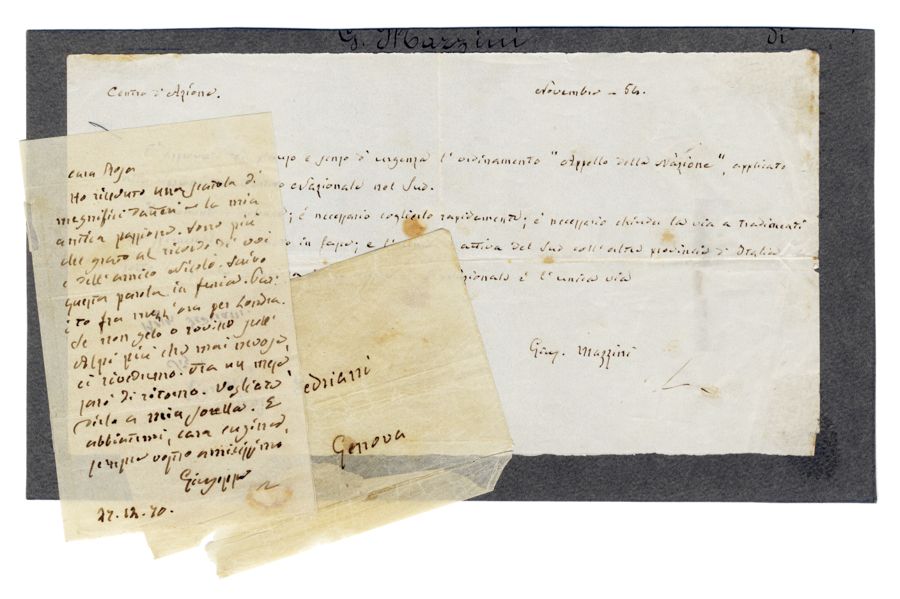 G. Mazzini di
Centro d'Azione.
Novembre - 54.
e senza d'urgenza l'ordinamento "Appello della Nazione", applicato
Nazionale nel Sud.
; è necessario coglierlo rapidamente; è necessario chiudere la via a tradimenti
in attiva del Sud coll'altre provincie d'Italia
è l'unica via
Giu. Mazzini
cara
Ho ricevuto una scatola di
magnifici datteri - la mia
antica passione. Sono più
che grato al ricordo di voi
e dell'amico Nicolò. Scrivo
questa parola in furia.
fra mezz'ora per Londra.
Se non gelo o rovino sull'
Alpi più che mai nevose,
ci rivedremo. Fra un mese
sarò di ritorno. Vogliate
dirlo a mia sorella. E
abbiatemi, cara cugina,
sempre vostro amicissimo
Giuseppe
27.12.70.
edrianni
Genova